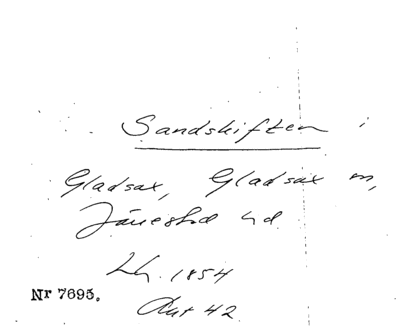 Sandskiften i
Gladsax, Gladsax sn,
Järrestad hd.
Lh. 1854
Akt 42
Nr 7695.